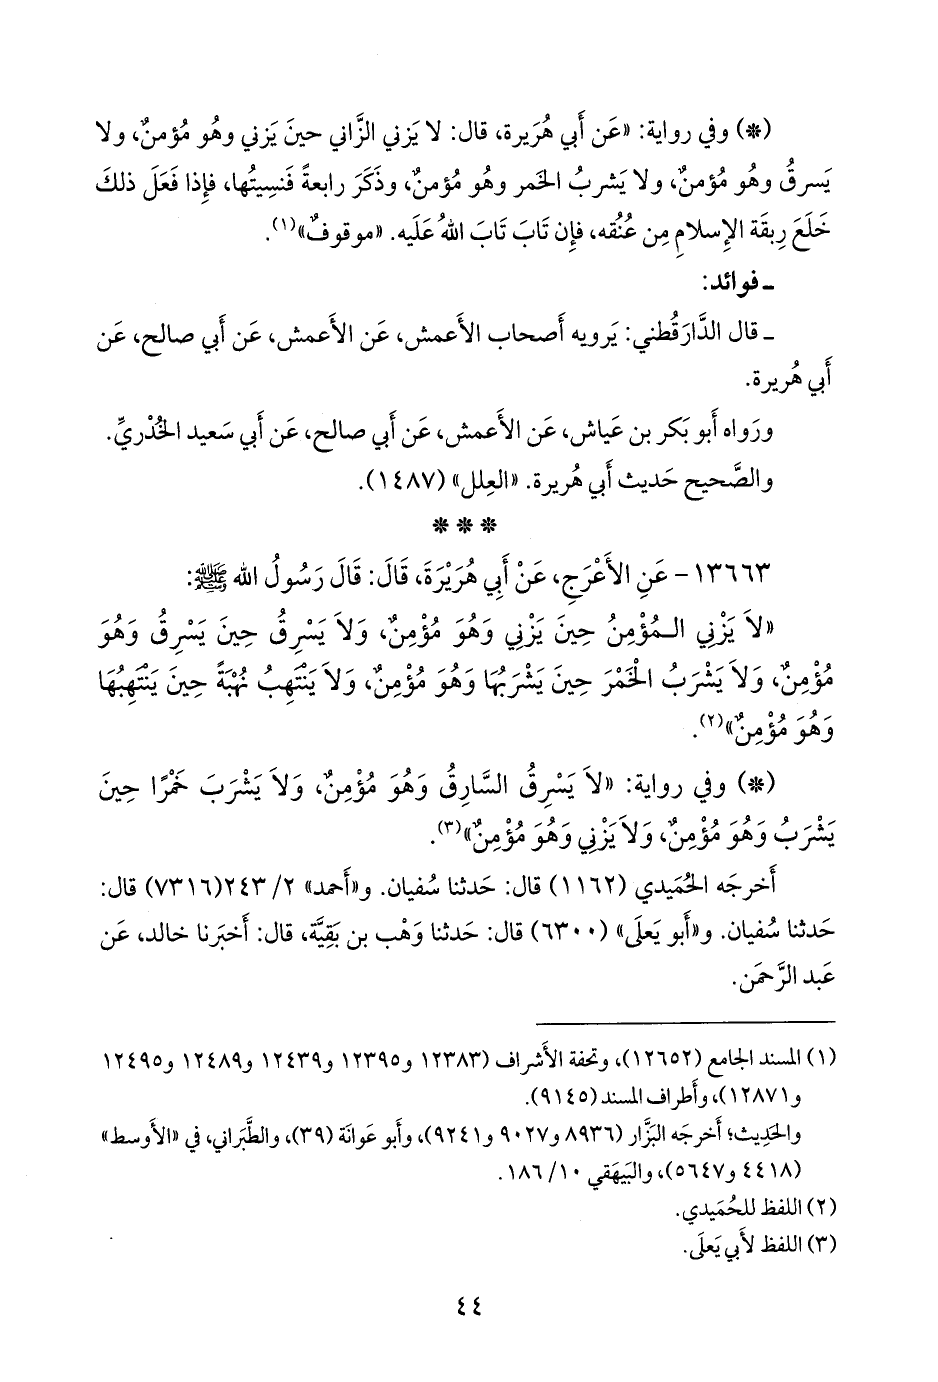 (*) وفي رواية: «عَن أَبي هُرَيرة، قال: لا يَزني الزَّاني حينَ يَزني وهُو مُؤمنٌ، ولا
يَسرقُ وهُو مُؤمنٌ، ولا يَشربُ الخَمر وهُو مؤمنٌ، وذَكَرَ رابعةً فَنسِيتُها، فإِذا فَعَلَ ذلكَ
خَلَعَ رِبقَة الإِسلامِ مِن عُنُقه، فإِن تَابَ تَابَ اللهُ عَلَيه. «موقوفٌ»(١).
ـ فوائد:
ـ قال الدَّارَقُطني: يَرويه أَصحاب الأَعمش، عَن الأَعمش، عَن أَبي صالح، عَن
أَبي هُريرة.
ورَواه أَبو بَكر بن عَياش، عَن الأَعمش، عَن أَبي صالح، عَن أَبي سَعيد الخُدْريِّ.
والصَّحيح حَديث أَبي هُريرة. «العِلل» (١٤٨٧).
* * *
١٣٦٦٣- عَنِ الأَعْرَجِ، عَنْ أَبِي هُرَيْرَةَ، قَالَ: قَالَ رَسُولُ الله ﷺ:
«لاَ يَزْنِي الـمُؤْمِنُ حِينَ يَزْنِي وَهُوَ مُؤْمِنٌ، وَلاَ يَسْرِقُ حِينَ يَسْرِقُ وَهُوَ
مُؤْمِنٌ، وَلاَ يَشْرَبُ الْخَمْرَ حِينَ يَشْرَبُهَا وَهُوَ مُؤْمِنٌ، وَلاَ يَنْتَهِبُ نُهْبَةً حِينَ يَنْتَهِبُهَا
وَهُوَ مُؤْمِنٌ»(٢).
(*) وفي رواية: «لاَ يَسْرِقُ السَّارِقُ وَهُوَ مُؤْمِنٌ، وَلاَ يَشْرَبَ خَمْرًا حِينَ
يَشْرَبُ وَهُوَ مُؤْمِنٌ، وَلاَ يَزْنِي وَهُوَ مُؤْمِنٌ»(٣).
أَخرجَه الحُمَيدي (١١٦٢) قال: حَدثنا سُفيان. و«أَحمد» ٢/ ٢٤٣(٧٣١٦) قال:
حَدثنا سُفيان. و«أَبو يَعلَى» (٦٣٠٠) قال: حَدثنا وَهْب بن بَقِيَّة، قال: أَخبَرنا خالد، عَن
عَبد الرَّحمَن.
(١) المسند الجامع (١٢٦٥٢)، وتحفة الأَشراف (١٢٣٨٣ و١٢٣٩٥ و١٢٤٣٩ و١٢٤٨٩ و١٢٤٩٥
و١٢٨٧١)، وأَطراف المسند (٩١٤٥).
والحَدِيث؛ أَخرجَه البَزَّار (٨٩٣٦ و٩٠٢٧ و٩٢٤١)، وأَبو عَوانَة (٣٩)، والطَّبَراني، في «الأَوسط»
(٤٤١٨ و٥٦٤٧)، والبَيهَقي ١٠/ ١٨٦.
(٢) اللفظ للحُمَيدي.
(٣) اللفظ لأَبي يَعلَى.
٤٤